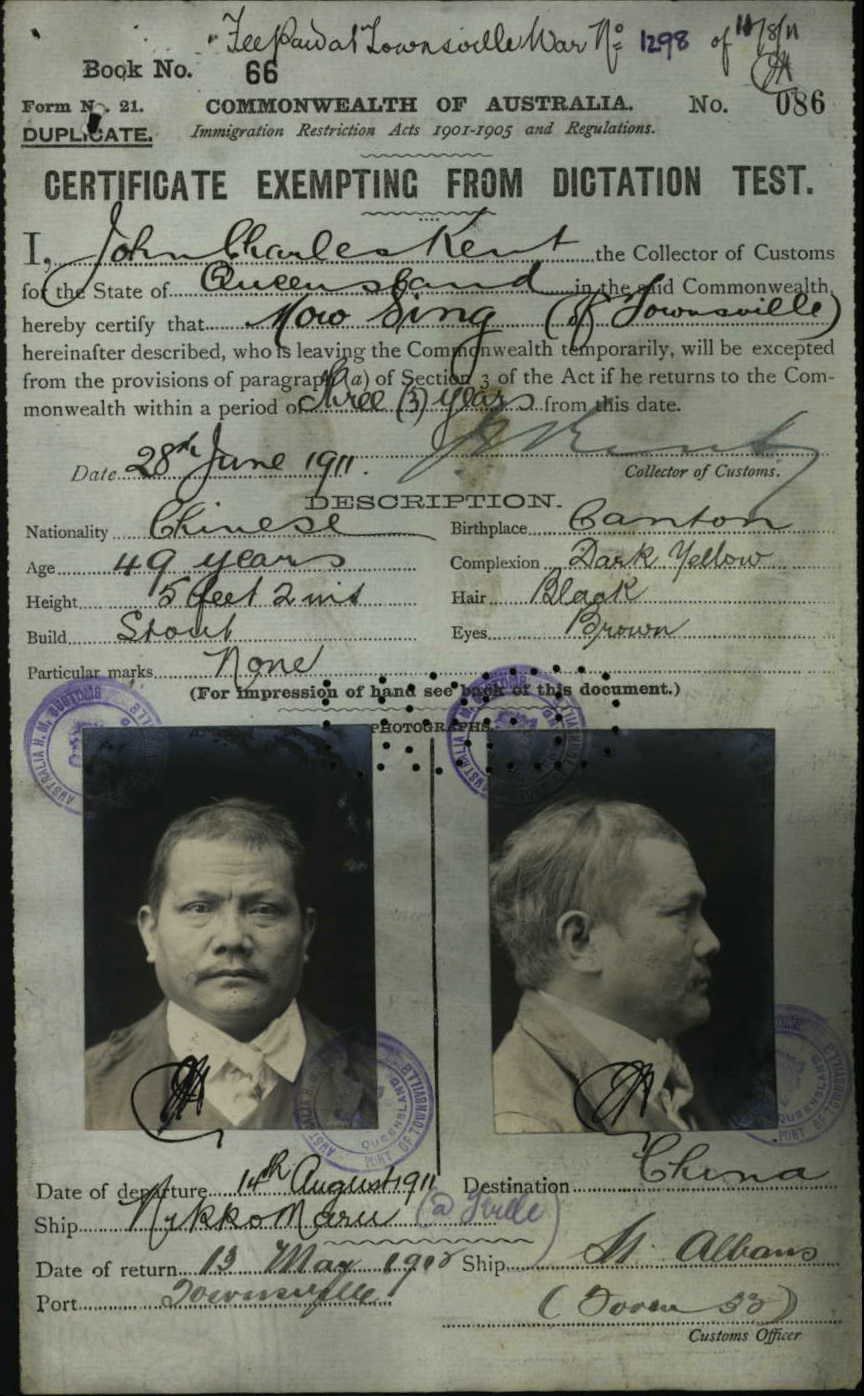 "Fee Paid at Townsville War No 1298 of 14/8/11
Book No. 66
Form No. 21. COMMONWEALTH OF AUSTRALIA. No. 086
DUPLICATE. Immigration Restriction Acts 1901-1905 and Regulations.
CERTIFICATE EXEMPTING FROM DICTATION TEST.
I, John Charles Kent the Collector of Customs
for the State of Queensland in the said Commonwealth,
hereby certify that Mow Sing (of Townsville)
hereinafter described, who is leaving the Commonwealth temporarily, will be excepted
from the provisions of paragraph (a) of Section 3 of the Act if he returns to the Com-
monwealth within a period of three (3) years from this date.
Date 28th June 1911. Kent
Collector of Customs.
DESCRIPTION.
Nationality Chinese Birthplace Canton
Age 49 years Complexion Dark Yellow
Height 5 feet 2 ins Hair Black
Build Stout Eyes Brown
Particular marks None
(For impression of hand see back of this document.)
PHOTOGRAPHS.
AUSTRALIA H. M. CUSTOMS
AUSTRALIA H. M. CUSTOMS
QUEENSLAND
PORT OF TOWNSVILLE
QUEENSLAND
PORT OF TOWNSVILLE
Date of departure 14th August 1911 Destination China
Ship Nikko Maru
Date of return 13 May Ship St. Albans
Port Townsville
Customs Officer